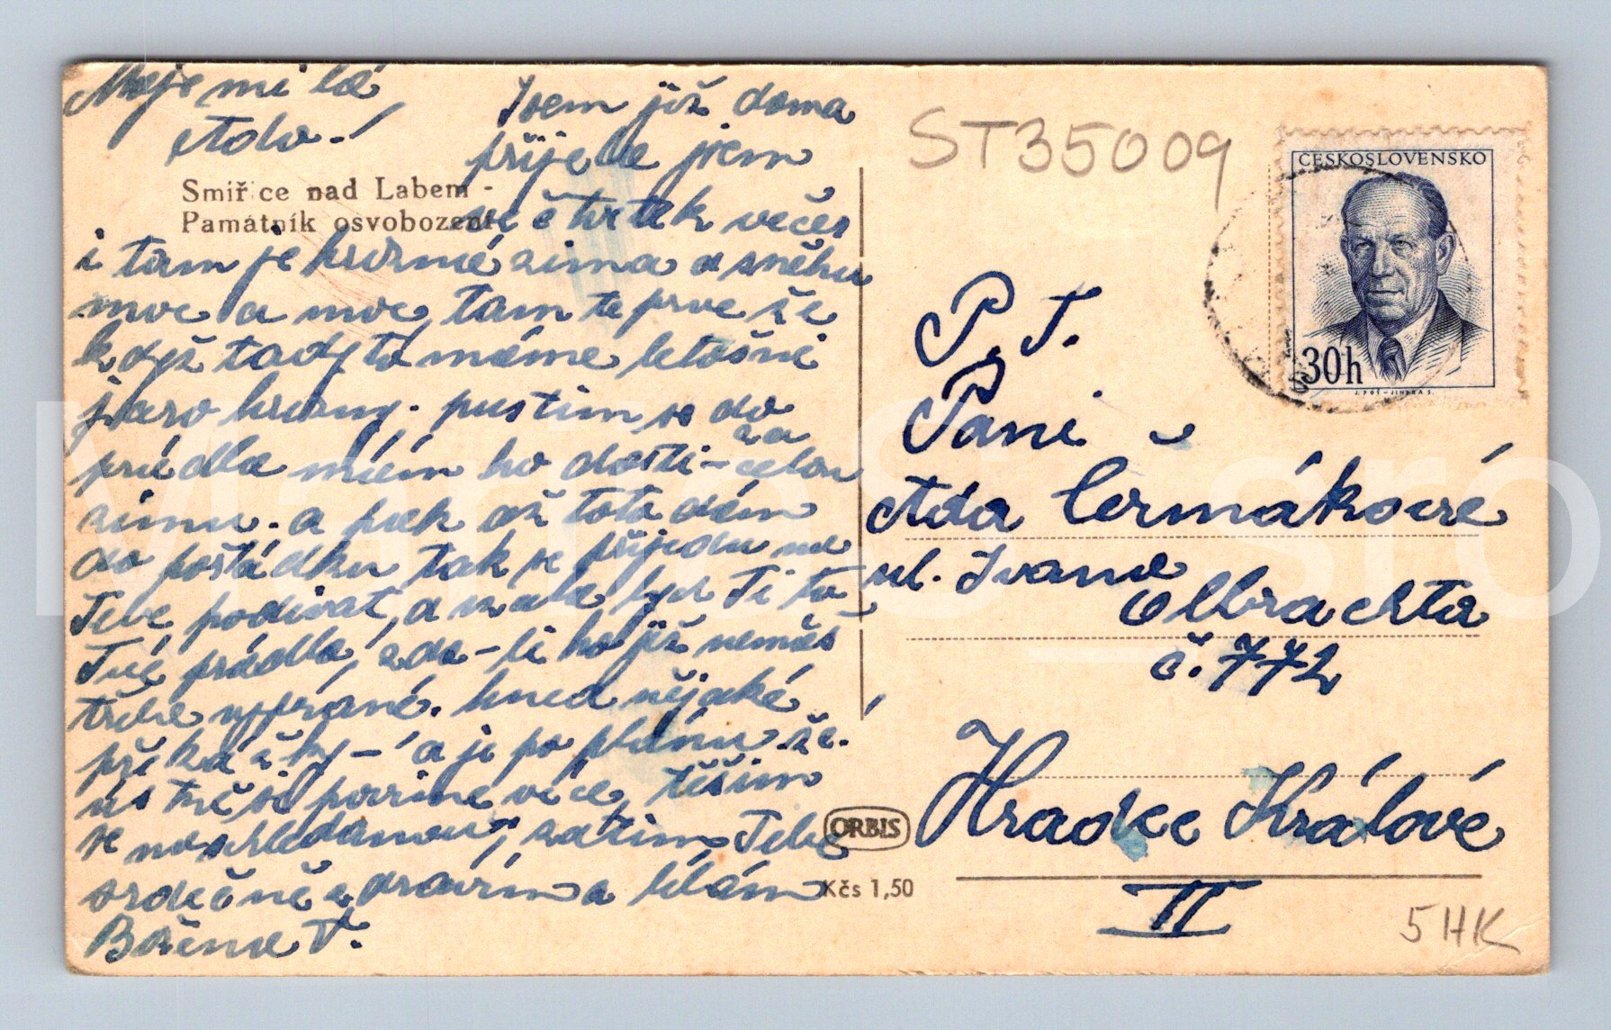 Moje milá
Ado!
Jsem již doma
přijela jsem
ve čtvrtek večer
Smiřice nad Labem -
Památník osvobození
i tam je hrozná zima a sněhu
moc a moc, tam teprve že
když tady to máme letošní
jaro hrozny. pustím se do
prádla mám ho dosti - za celou
zimu. a pak až toto dám
do pořádku tak se přijedu na
Tebe podívat, a vzala bych Ti to
Tvé prádlo, zda-li ho již nemáš
třeba vyprané. hned nějaké
překážky - a je po plánu. že.
ústně si povíme více těším
se na shledanou, zatím Tebe
srdečně zdravím a líbám
Božena T.
ST35009
ČESKOSLOVENSKO
30h
P. T.
Paní
Ada Čermákové
ul. Ivana
Olbrachta
č. 772
Hradec Králové
II
ORBIS
Kčs 1,50
5HK